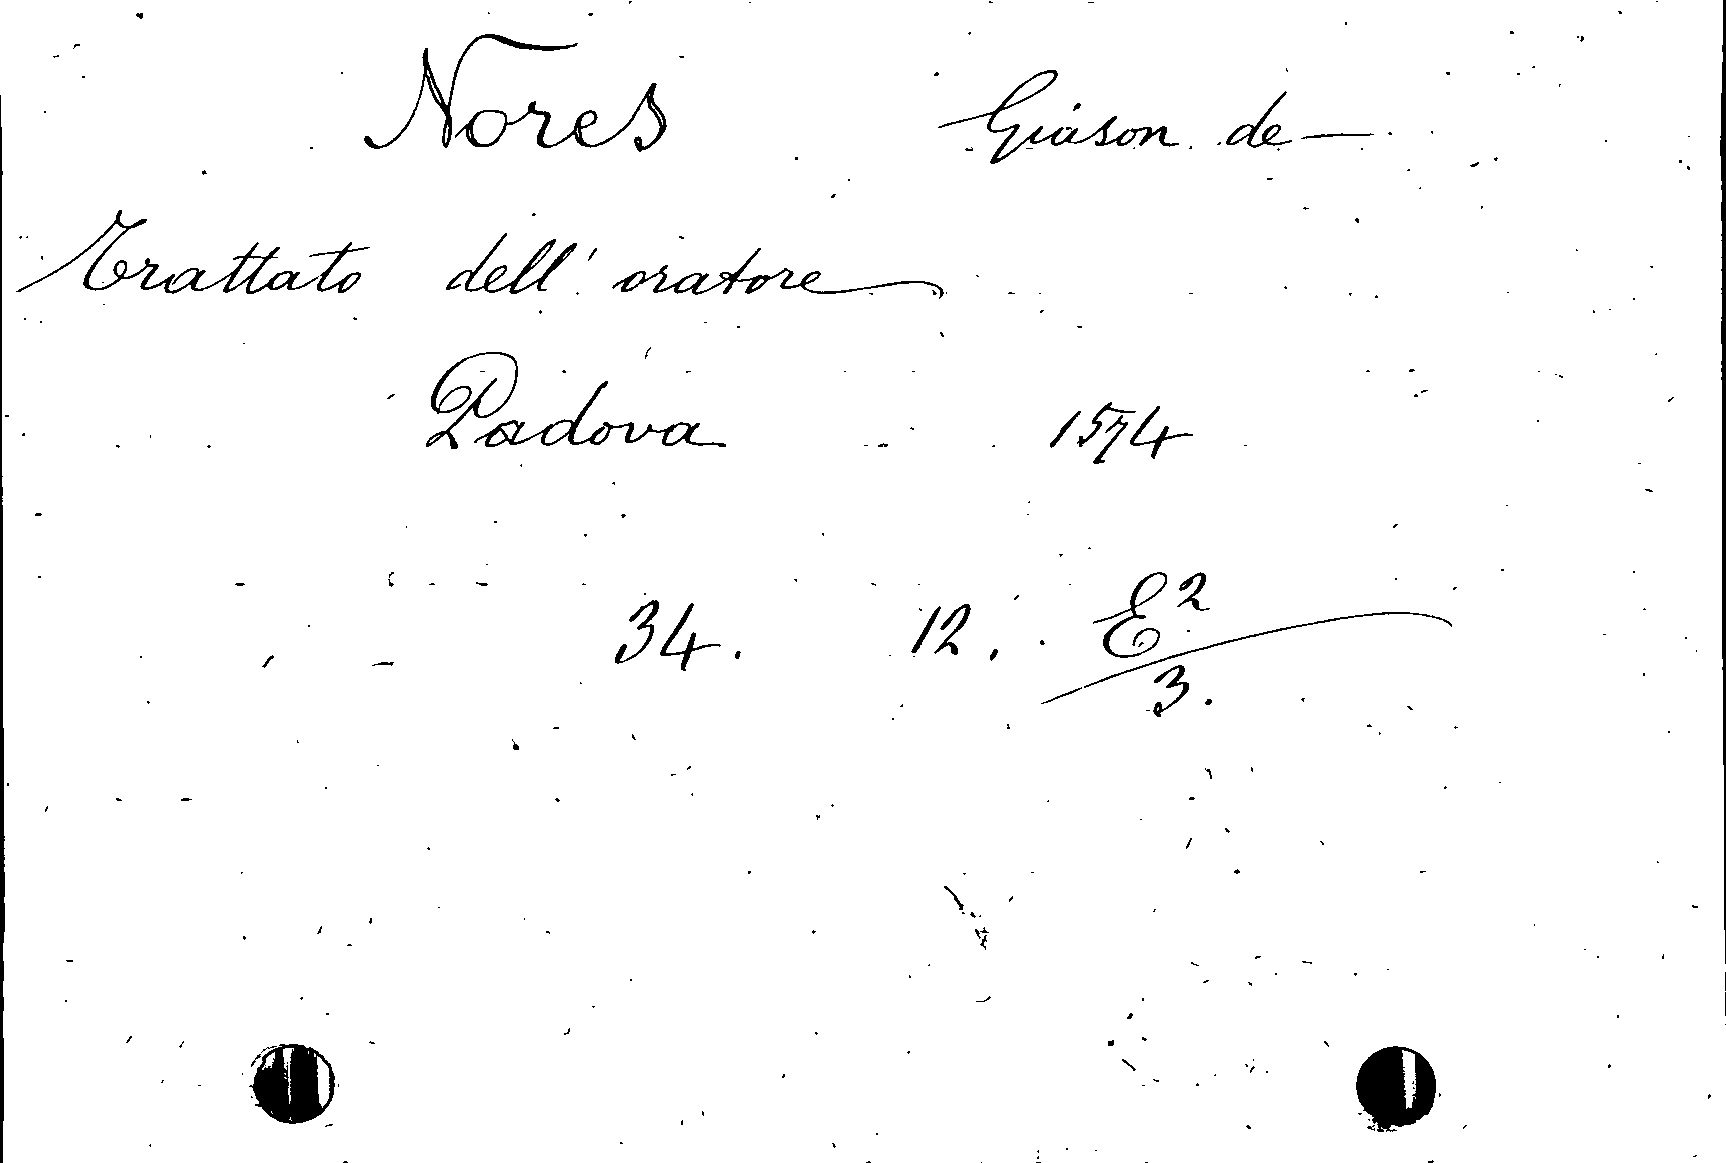 Nores Giason de —
Trattato dell' oratore
Padova 1574
34. 12. E²
3.